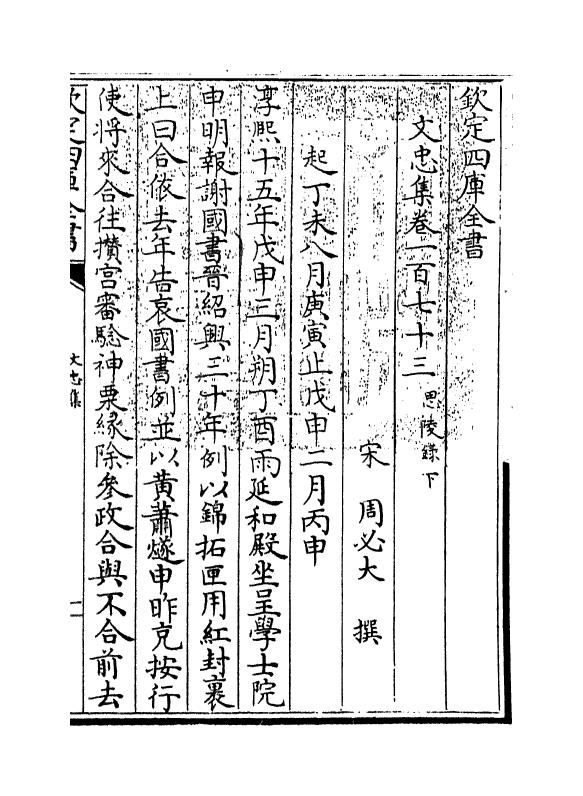 欽定四庫全書
文忠集卷一百七十三 思陵錄下
宋 周必大 撰
起丁未八月庚寅止戊申二月丙申
淳熙十五年戊申三月朔丁酉雨延和殿坐呈學士院
申明報謝國書晉紹興三十年例以錦拓匣用紅封裏
上曰合依去年告哀國書例並以黃蕭燧申昨充按行
使將來合往攢宮審驗神栗緣除參政合與不合前去
欽定四庫全書
文忠集
一